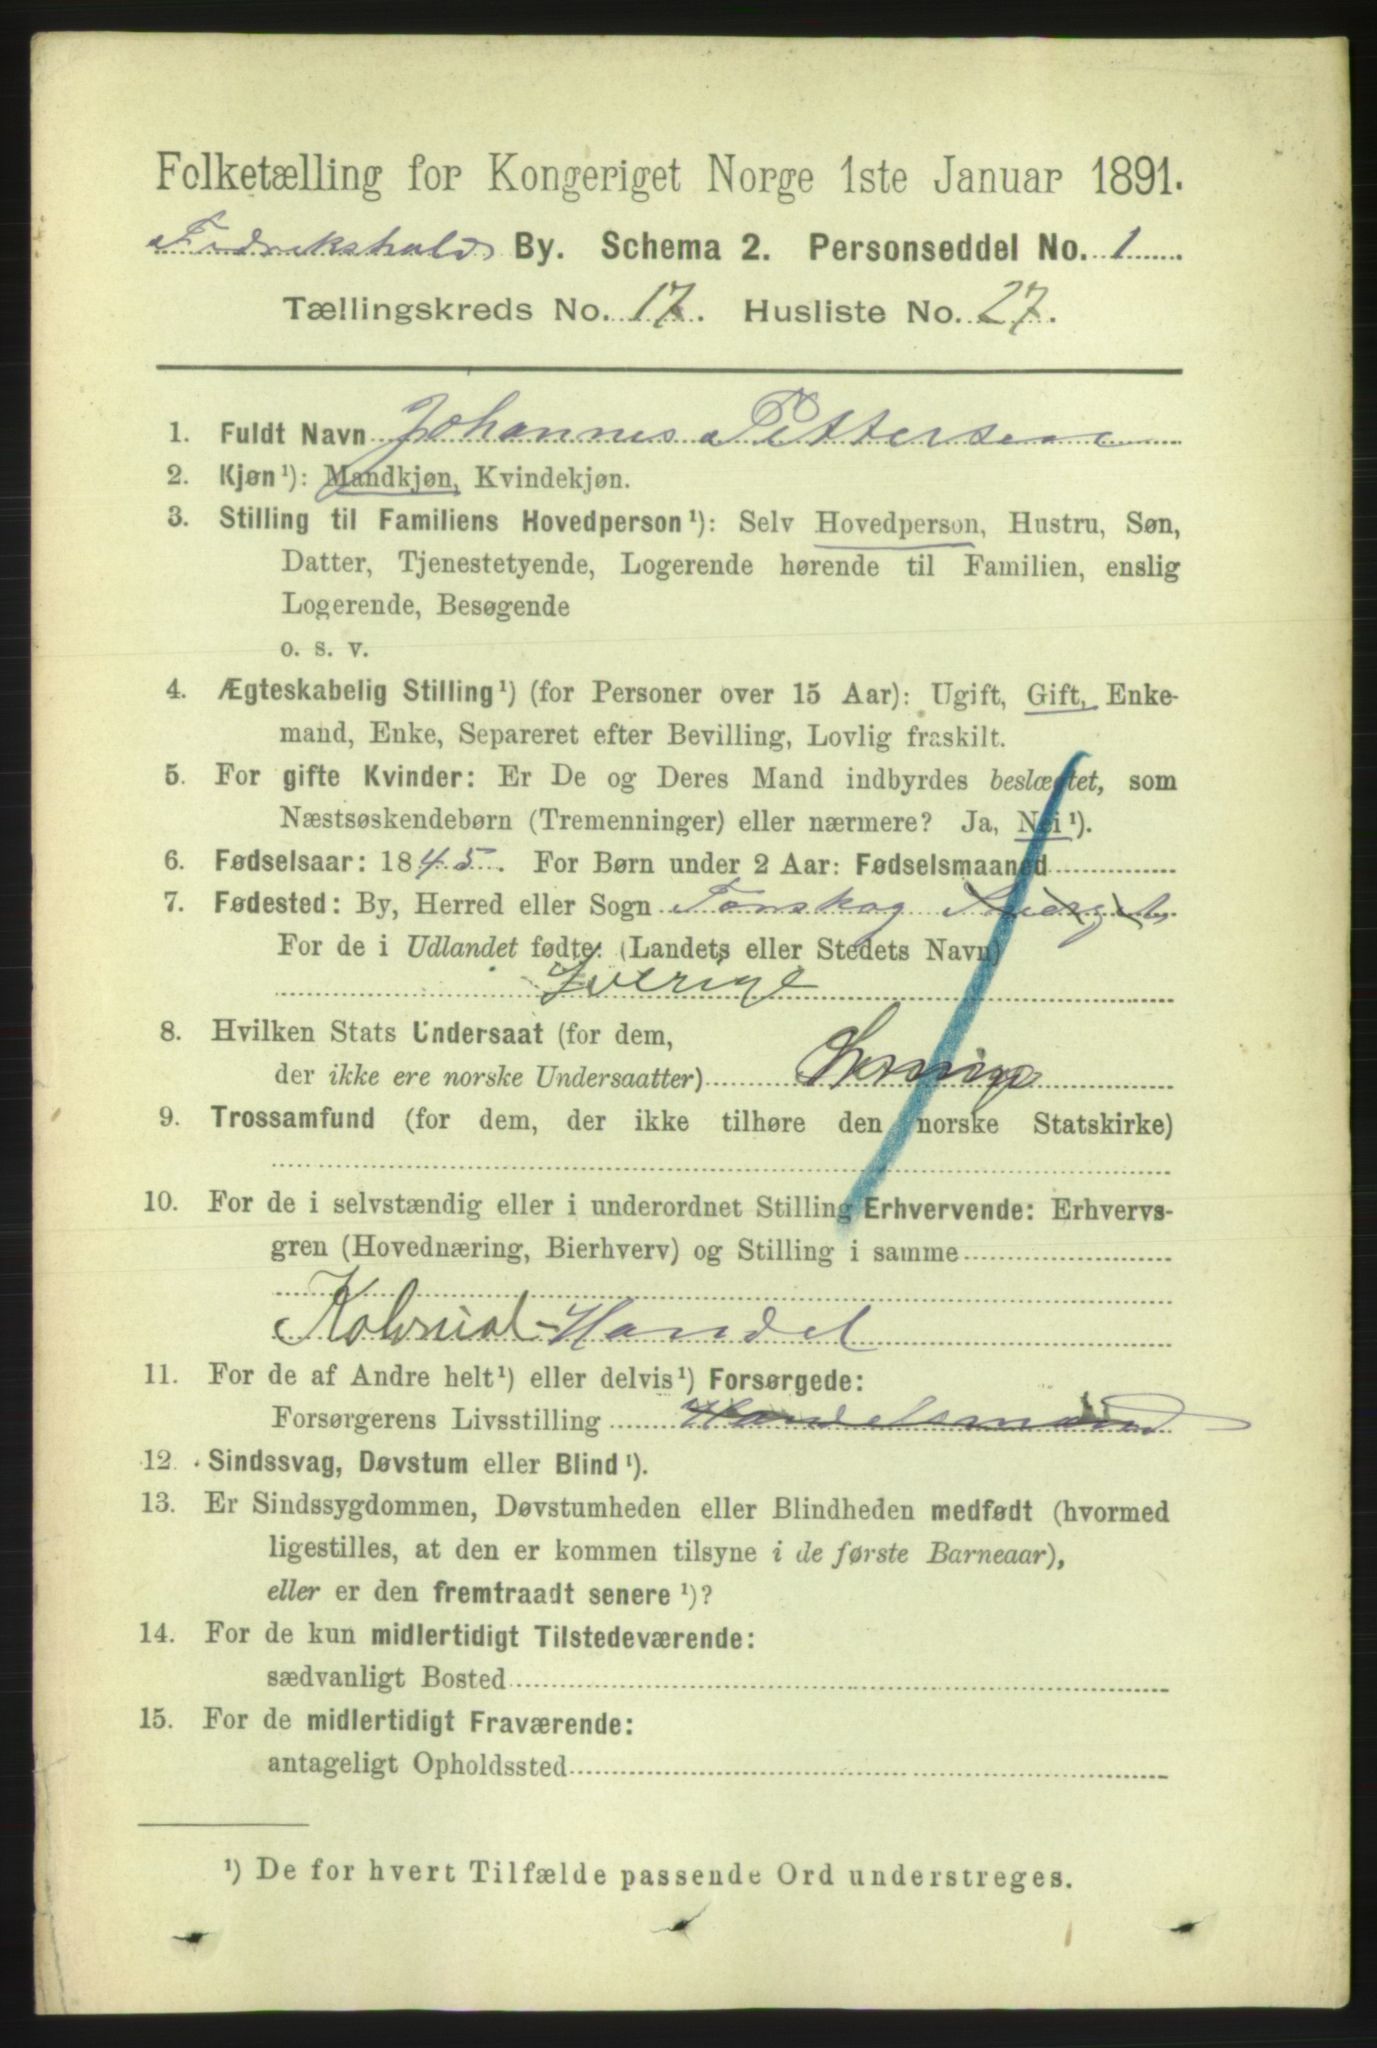 Folketælling for Kongeriget Norge 1ste Januar 1891.
Fredrikshalds By. Schema 2. Personseddel No. 1
Tællingskreds No. 17. Husliste No. 27.
1. Fuldt Navn Johannes Pettersen
2. Kjøn¹): Mandkjøn, Kvindekjøn.
3. Stilling til Familiens Hovedperson¹): Selv Hovedperson, Hustru, Søn,
Datter, Tjenestetyende, Logerende hørende til Familien, enslig
Logerende, Besøgende
o. s. v.
4. Ægteskabelig Stilling¹) (for Personer over 15 Aar): Ugift, Gift, Enke-
mand, Enke, Separeret efter Bevilling, Lovlig fraskilt.
5. For gifte Kvinder: Er De og Deres Mand indbyrdes beslægtet, som
Næstsøskendebørn (Tremenninger) eller nærmere? Ja, Nei¹).
6. Fødselsaar: 1845. For Børn under 2 Aar: Fødselsmaaned
7. Fødested: By, Herred eller Sogn Torrskog
For de i Udlandet fødte: (Landets eller Stedets Navn)
Sverige
8. Hvilken Stats Undersaat (for dem,
der ikke ere norske Undersaatter)
9. Trossamfund (for dem, der ikke tilhøre den norske Statskirke)
10. For de i selvstændig eller i underordnet Stilling Erhvervende: Erhvervs-
gren (Hovednæring, Bierhverv) og Stilling i samme
Kolonial-Handel
11. For de af Andre helt¹) eller delvis¹) Forsørgede:
Forsørgerens Livsstilling Handelsmand
12. Sindssvag, Døvstum eller Blind¹).
13. Er Sindssygdommen, Døvstumheden eller Blindheden medfødt (hvormed
ligestilles, at den er kommen tilsyne i de første Barneaar),
eller er den fremtraadt senere¹)?
14. For de kun midlertidigt Tilstedeværende:
sædvanligt Bosted
15. For de midlertidigt Fraværende:
antageligt Opholdssted
¹) De for hvert Tilfælde passende Ord understreges.